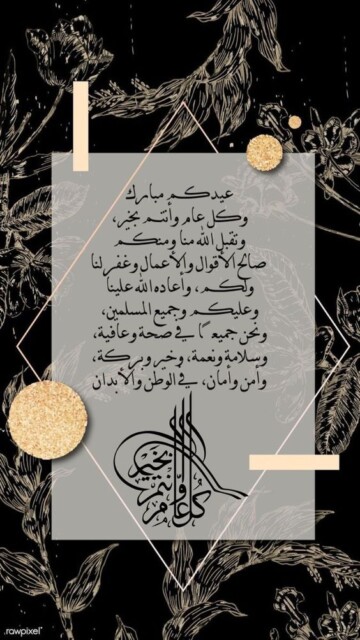 عيدكم مبارك
وكل عام وأنتم بخير،
وتقبل الله منا ومنكم
صالح الأقوال والأعمال وغفر لنا
ولكم، وأعاده الله علينا
وعليكم وجميع المسلمين،
ونحن جميعًا في صحة وعافية،
وسلامة ونعمة، وخير وبركة،
وأمن وأمان، في الوطن والأبدان
كل عام وأنتم بخير
rawpixel